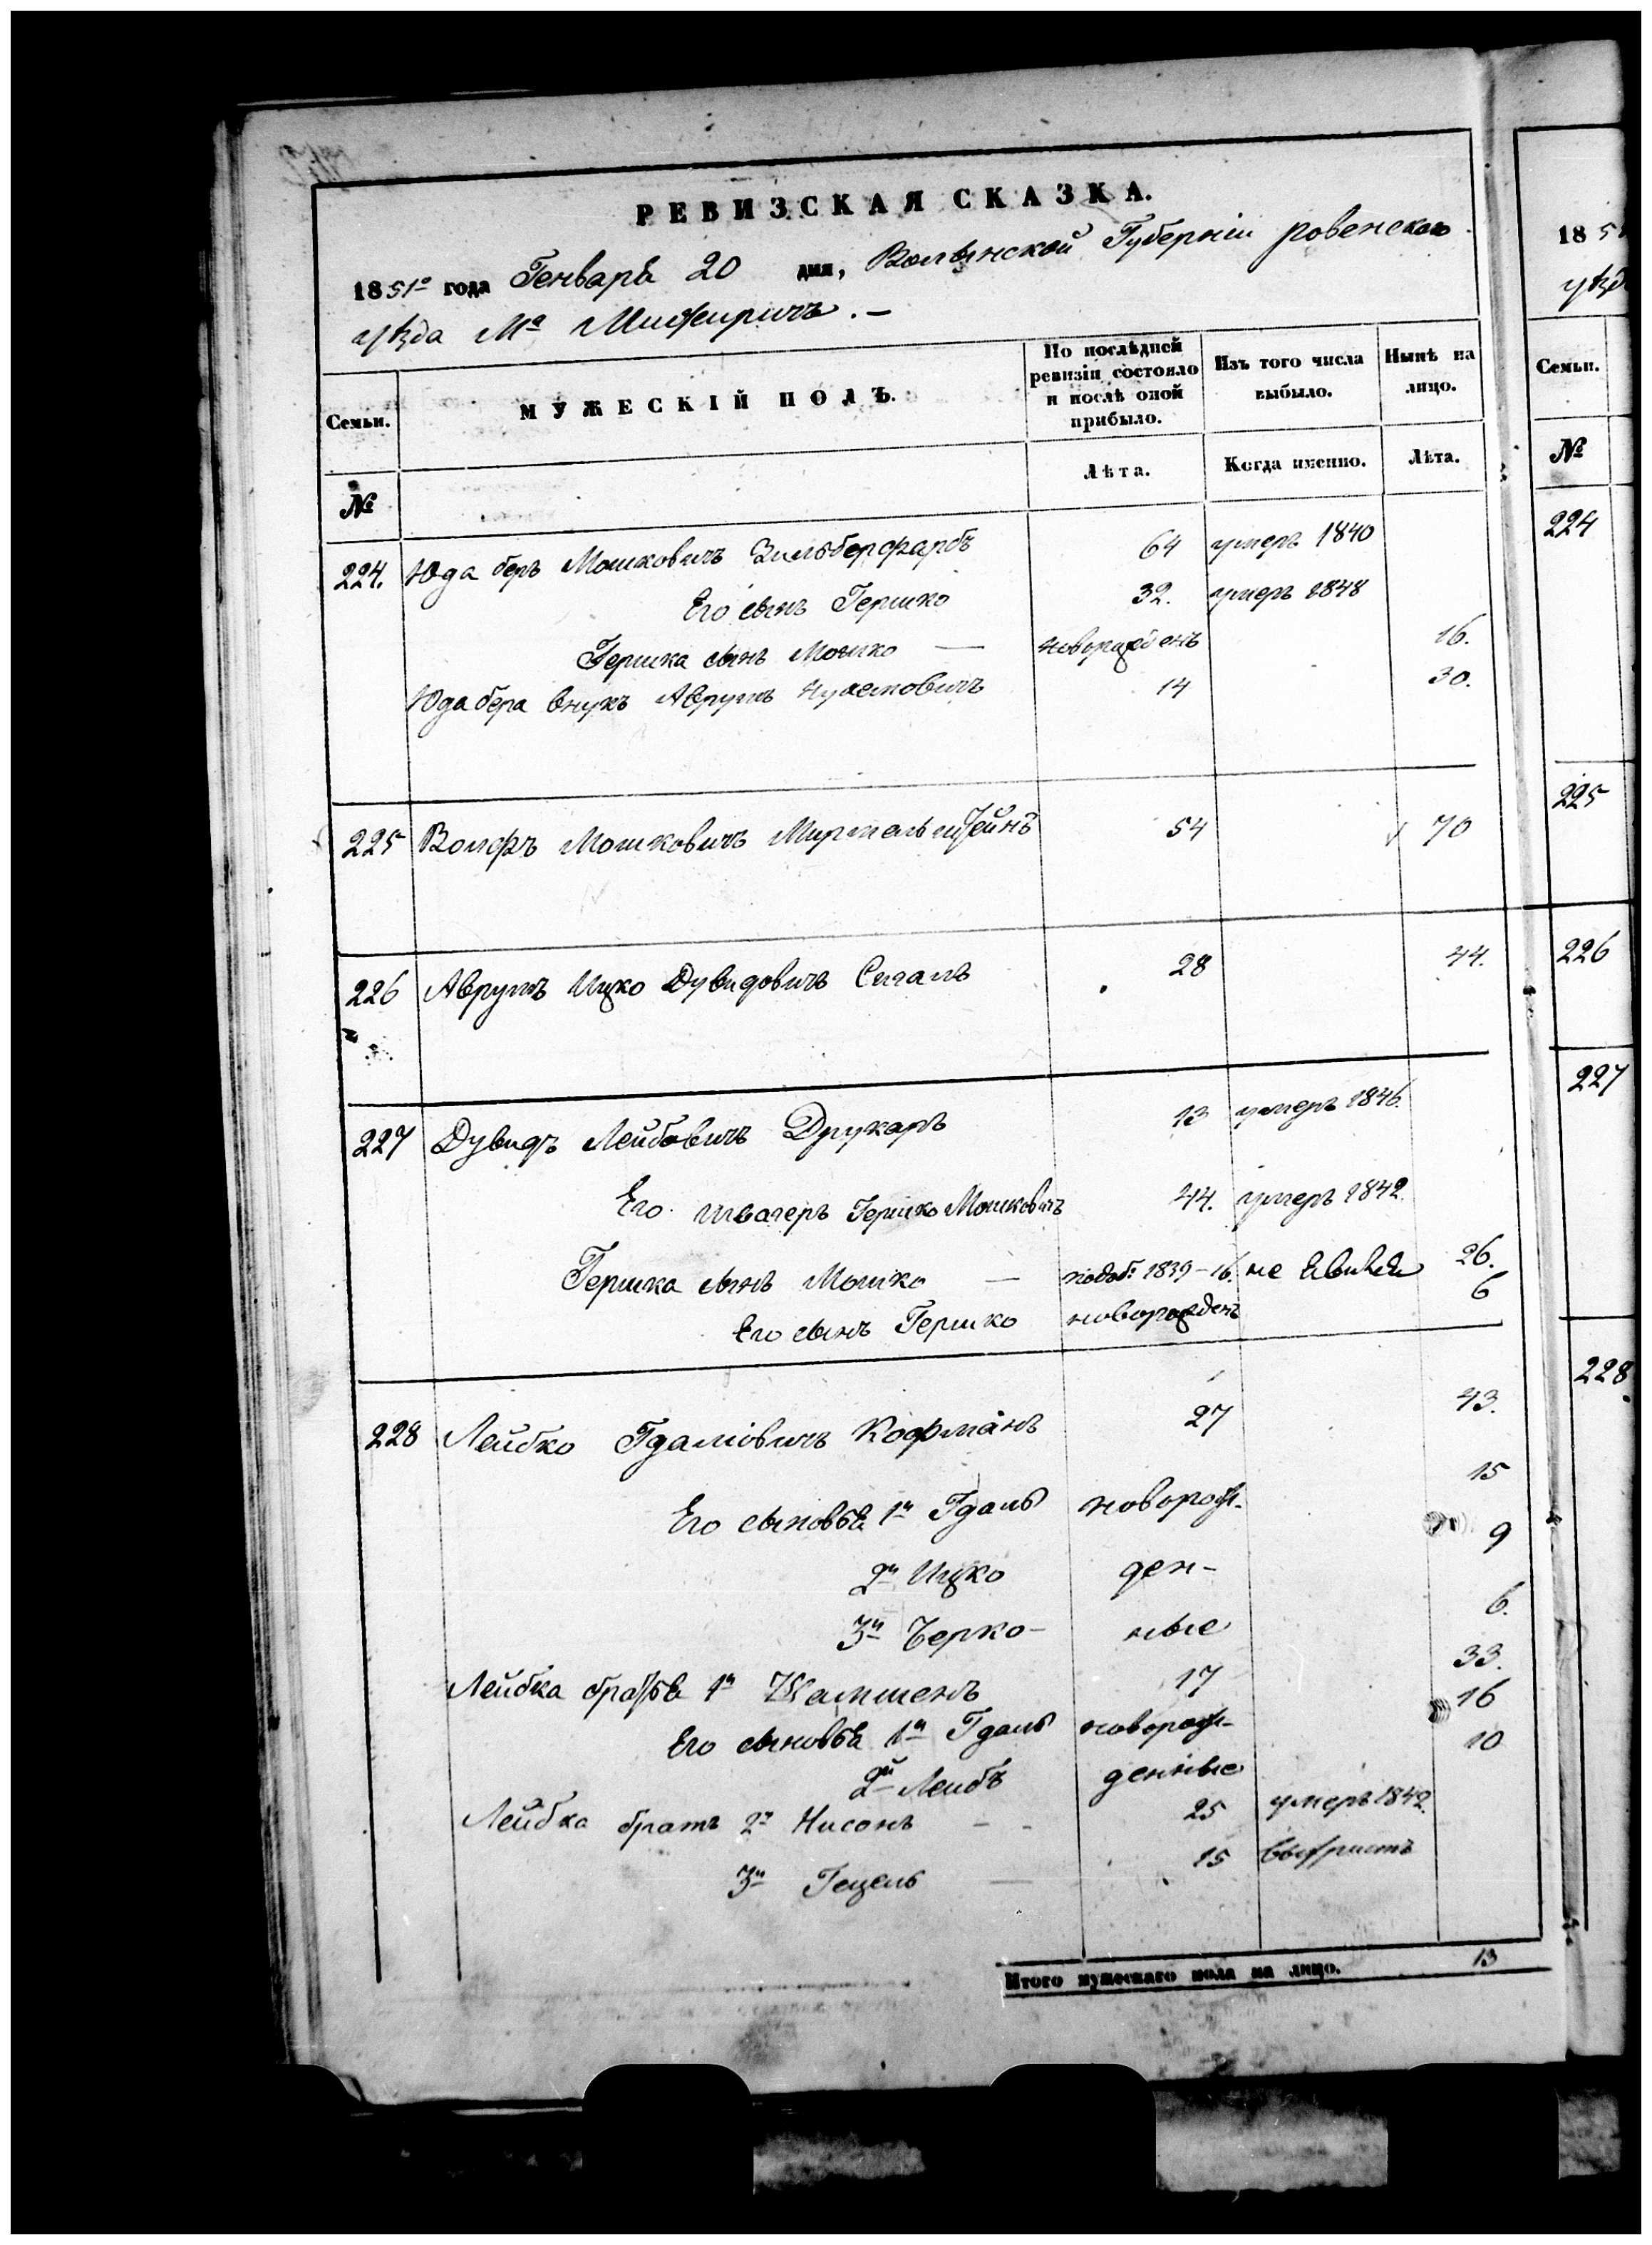 РЕВИЗСКАЯ СКАЗКА.
1851го года Генваря 20 дня, Волынской Губернiи ровенскаго
уѣзда Мa Мижирича.-
Семьи.
МУЖЕСКIЙ ПОЛЪ.
По послѣдней ревизiи состояло и послѣ оной прибыло.
Изъ того числа выбыло.
Нынѣ на лицо.
№
Лѣта.
Когда именно.
Лѣта.
224. Юда беръ Мошковичъ Зильберфарбъ 64 умеръ 1840
Его сынъ Гершко 32. умеръ 1848
Гершка сынъ Мошко — новорожденъ 16.
Юда бера внукъ Аврумъ Нухемовичъ 14 30.
225 Волфъ Мошковичъ Миртельштейнъ 54 70
226 Аврумъ Ицко Дувидовичъ Сигалъ 28 44.
227 Дувидъ Лейбовичъ Друкаръ 13 умеръ 1846.
Его швагеръ Гершко Мошковичъ 44. умеръ 1842.
Гершка сынъ Мошко — 1839 - 16. не 26.
Его сынъ Гершко новорожденъ 6
228 Лейбко Гдалiовичъ Кофманъ 27 43.
Его сыновья 1й Гдаль новорож- 15
2й Ицко ден- 9
3й Берко- ные 6.
Лейбка братья 1й Шамшенъ 17 33.
Его сыновья 1й Гдаль новорож- 16
2й Лейбъ денные 10
Лейбка братъ 2й Нисонъ - - 25 умеръ 1842.
3й Гецель — 15
Итого мужескаго пола на лицо. 13
18 5
уѣзд
Семьи.
№
224
225
226
227
228